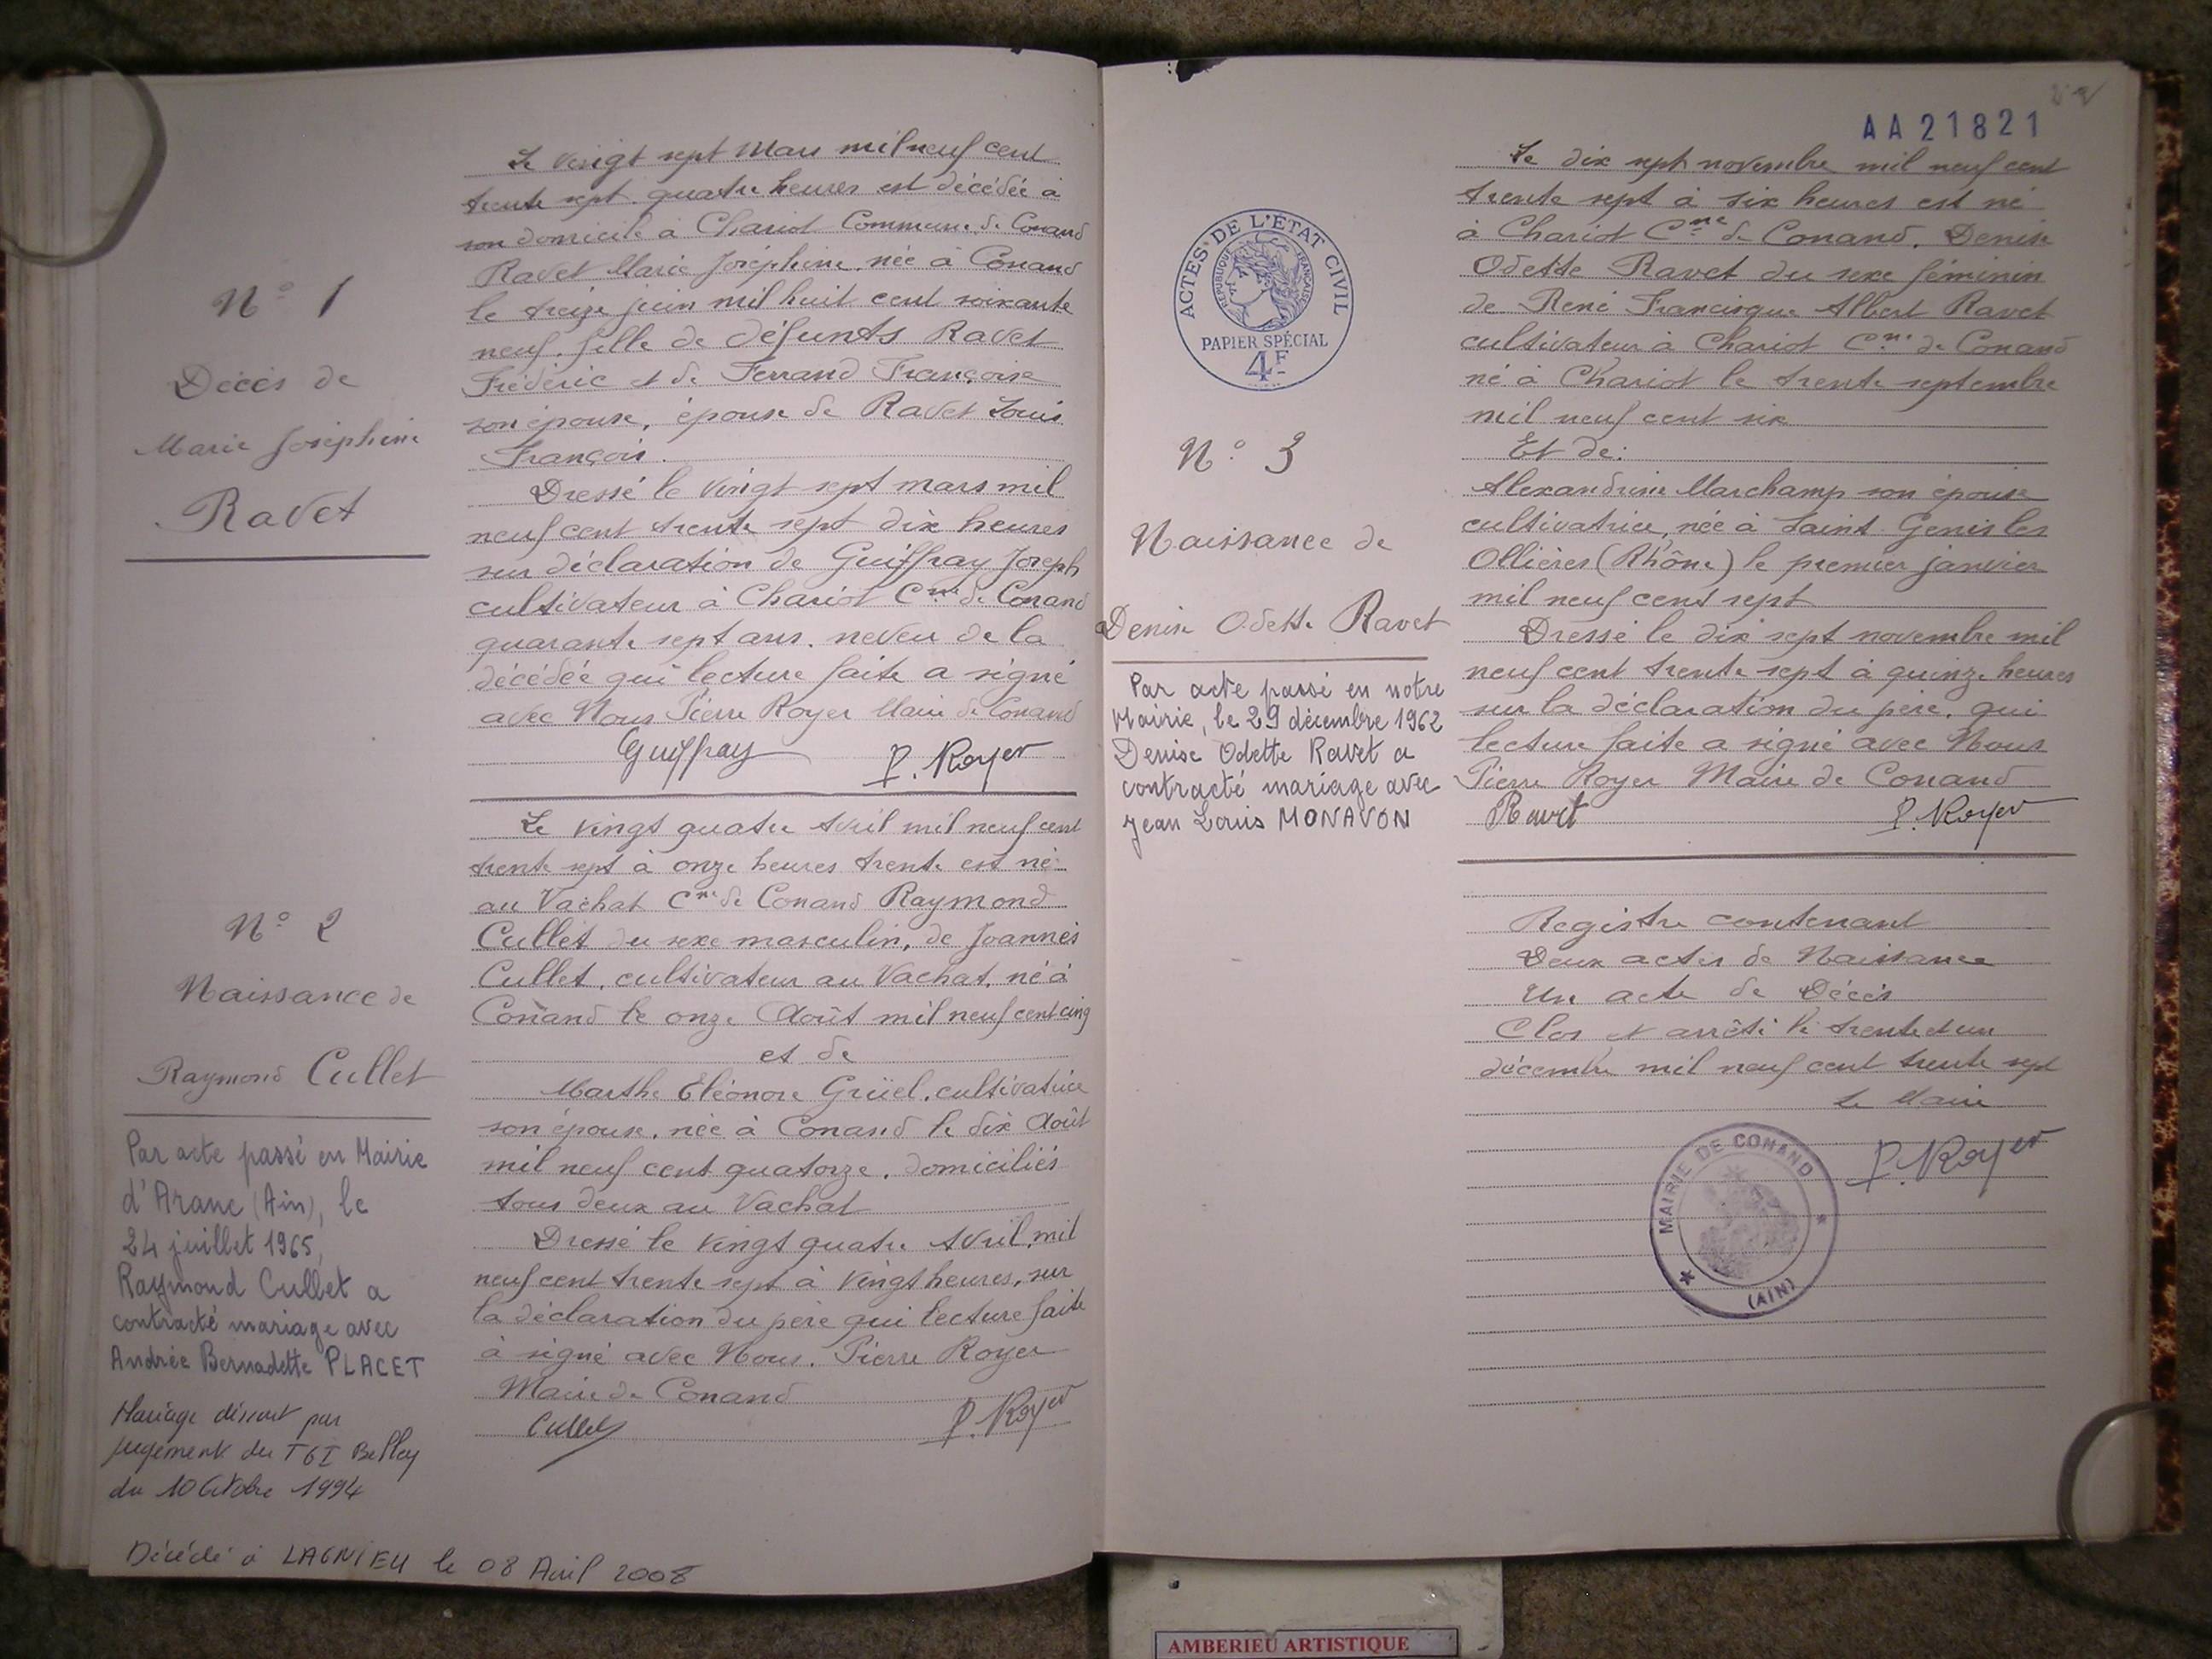 N° 1
Décès de
Marie Joséphine
Ravet
Le vingt sept Mars mil neuf cent
trente sept quatre heures est décédée à
son domicile à Chariot Commune de Conand
Ravet Marie Joséphine née à Conand
le treize juin mil huit cent soixante
neuf, fille de défunts Ravet
Frédéric et de Ferrand Françoise
son épouse, épouse de Ravet Louis
François.
Dressé le vingt sept mars mil
neuf cent trente sept dix heures
sur déclaration de Guiffray Joseph
cultivateur à Chariot Cne de Conand
quarante sept ans. neveu de la
décédée qui lecture faite a signé
avec Nous Pierre Royer Maire de Conand
Guiffray P. Royer
N° 2
Naissance de
Raymond Cullet
Par acte passé en Mairie
d'Aranc (Ain), le
24 juillet 1965,
Raymond Cullet a
contracté mariage avec
Andrée Bernadette PLACET
Mariage dissout par
jugement du TGI Belley
du 10 Octobre 1994
Décédé à LAGNIEU le 08 Avril 2008
Le vingt quatre Avril mil neuf cent
trente sept à onze heures trente est né
au Vachat Cne de Conand Raymond
Cullet du sexe masculin, de Joannès
Cullet, cultivateur au Vachat, né à
Conand le onze Août mil neuf cent cinq
et de
Marthe Eléonore Grüel, cultivatrice
son épouse, née à Conand le dix Août
mil neuf cent quatorze, domiciliés
tous deux au Vachat
Dressé le vingt quatre Avril mil
neuf cent trente sept à vingt heures, sur
la déclaration du père qui lecture faite
à signé avec Nous. Pierre Royer
Maire de Conand
Cullet P. Royer
AA21821
ACTES DE L'ÉTAT CIVIL
RÉPUBLIQUE FRANÇAISE
PAPIER SPÉCIAL
4F
N° 3
Naissance de
Denise Odette Ravet
Par acte passé en notre
Mairie, le 29 décembre 1962
Denise Odette Ravet a
contracté mariage avec
Jean Louis MONAVON
Le dix sept novembre mil neuf cent
trente sept à six heures est né
à Chariot Cne de Conand. Denise
Odette Ravet du sexe féminin
de René Francisque Albert Ravet
cultivateur à Chariot Cne de Conand
né à Chariot le trente septembre
mil neuf cent six
Et de:
Alexandrine Marchamp son épouse
cultivatrice, née à Saint Genis les
Ollières (Rhône) le premier janvier
mil neuf cent sept
Dressé le dix sept novembre mil
neuf cent trente sept à quinze heures
sur la déclaration du père, qui
lecture faite a signé avec Nous
Pierre Royer Maire de Conand
Ravet P. Royer
Registre contenant
Deux actes de Naissance
Un acte de Décès
Clos et arrêté le trente et un
décembre mil neuf cent trente sept
Le Maire
P. Royer
MAIRIE DE CONAND
(AIN)
AMBERIEU ARTISTIQUE